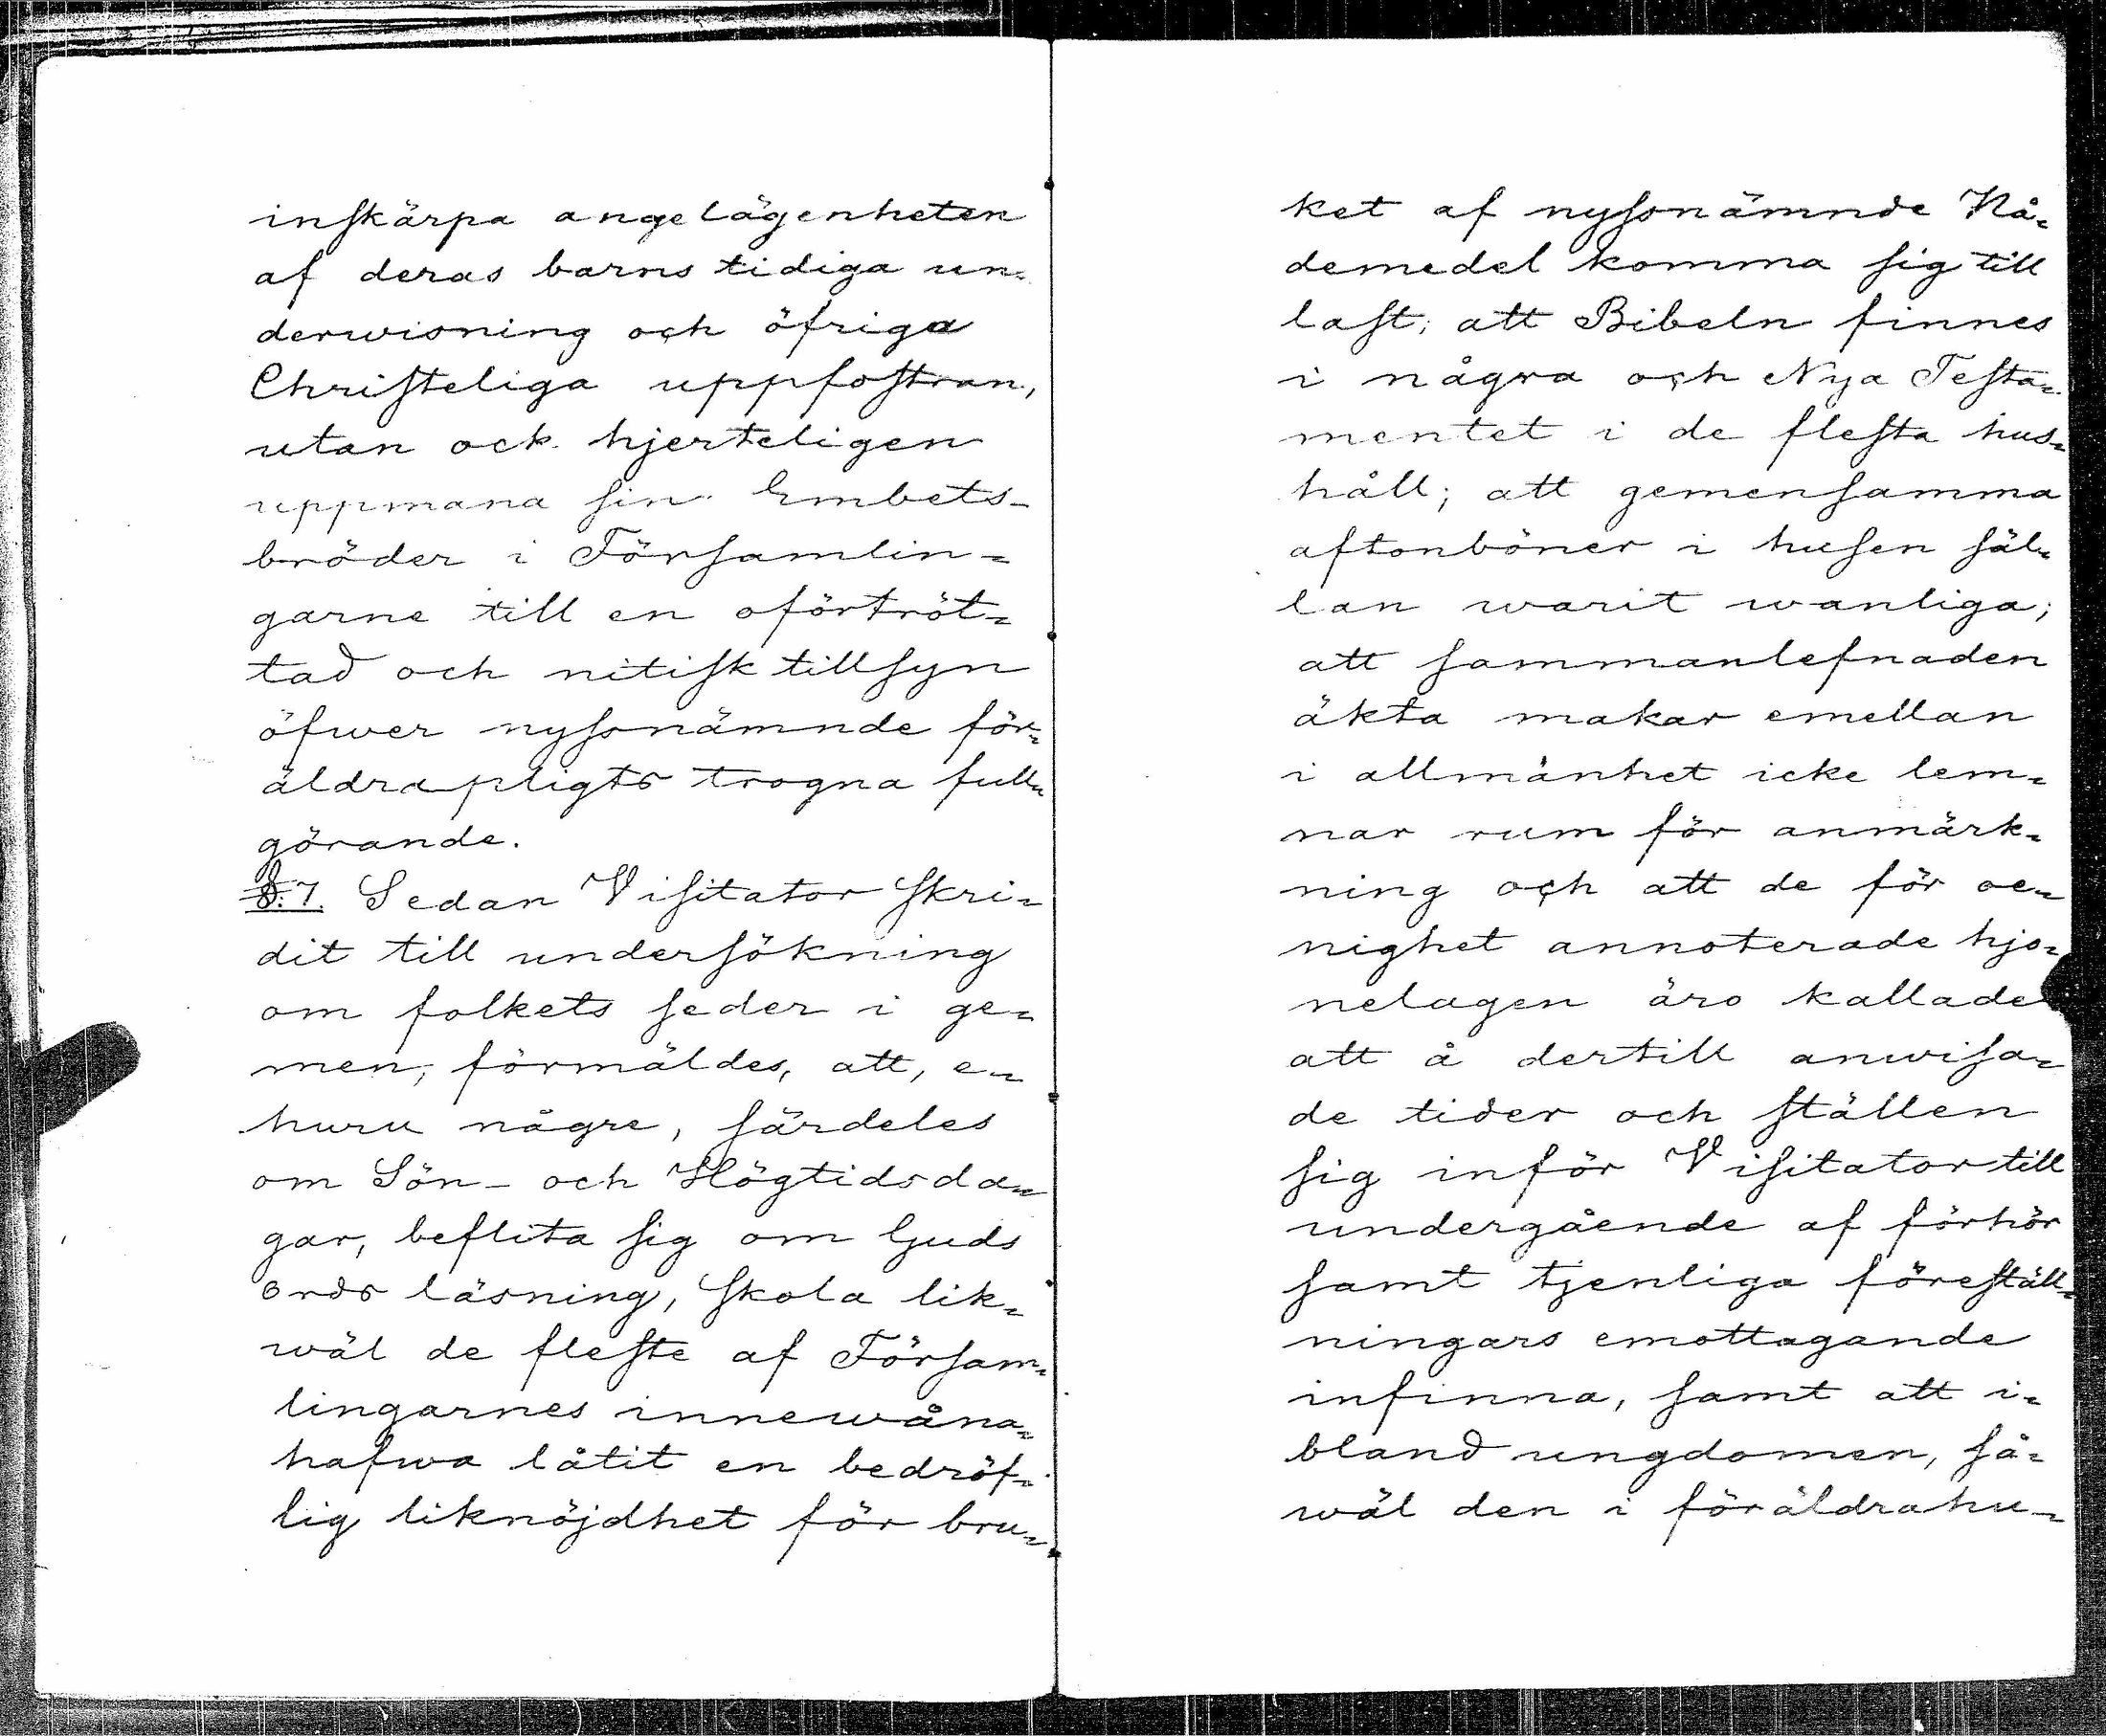 inskärpa angelägenheten
af deras barns tidiga un-
derwisning och öfriga
Christeliga uppfostran,
utan ock hjerteligen
uppmana sin Embets-
bröder i Församlin-
garne till en oförtröt-
tad och nitisk tillsyn
öfwer nyssnämnde för-
äldrapligts trogna full-
görande.
§. 7. Sedan Visitator skri-
dit till undersökning
om folkets seder i ge-
men, förmäldes, att, e-
huru någre, särdeles
om Sön- och Högtidsda-
gar, beflita sig om Guds
ords läsning, skola lik-
wäl de fleste af Försam-
lingarnes innewåna-
hafwa låtit en bedröf-
lig liknöjdhet för bru-
ket af nyssnämnde Nå-
demedel komma sig till
last; att Bibeln finnes
i några och Nya Testa-
mentet i de flesta hus-
håll; att gemensamma
aftonböner i husen säl-
lan warit wanliga;
att sammanlefnaden
äkta makar emellan
i allmänhet icke lem-
nar rum för anmärk-
ning och att de för oe-
nighet annoterade hjo-
nelagen äro kallade
att å dertill anwisa-
de tider och ställen
sig inför Visitator till
undergående af förhör
samt tjenliga föreställ-
ningars emottagande
infinna, samt att i-
bland ungdomen, så-
wäl den i föräldrahu-